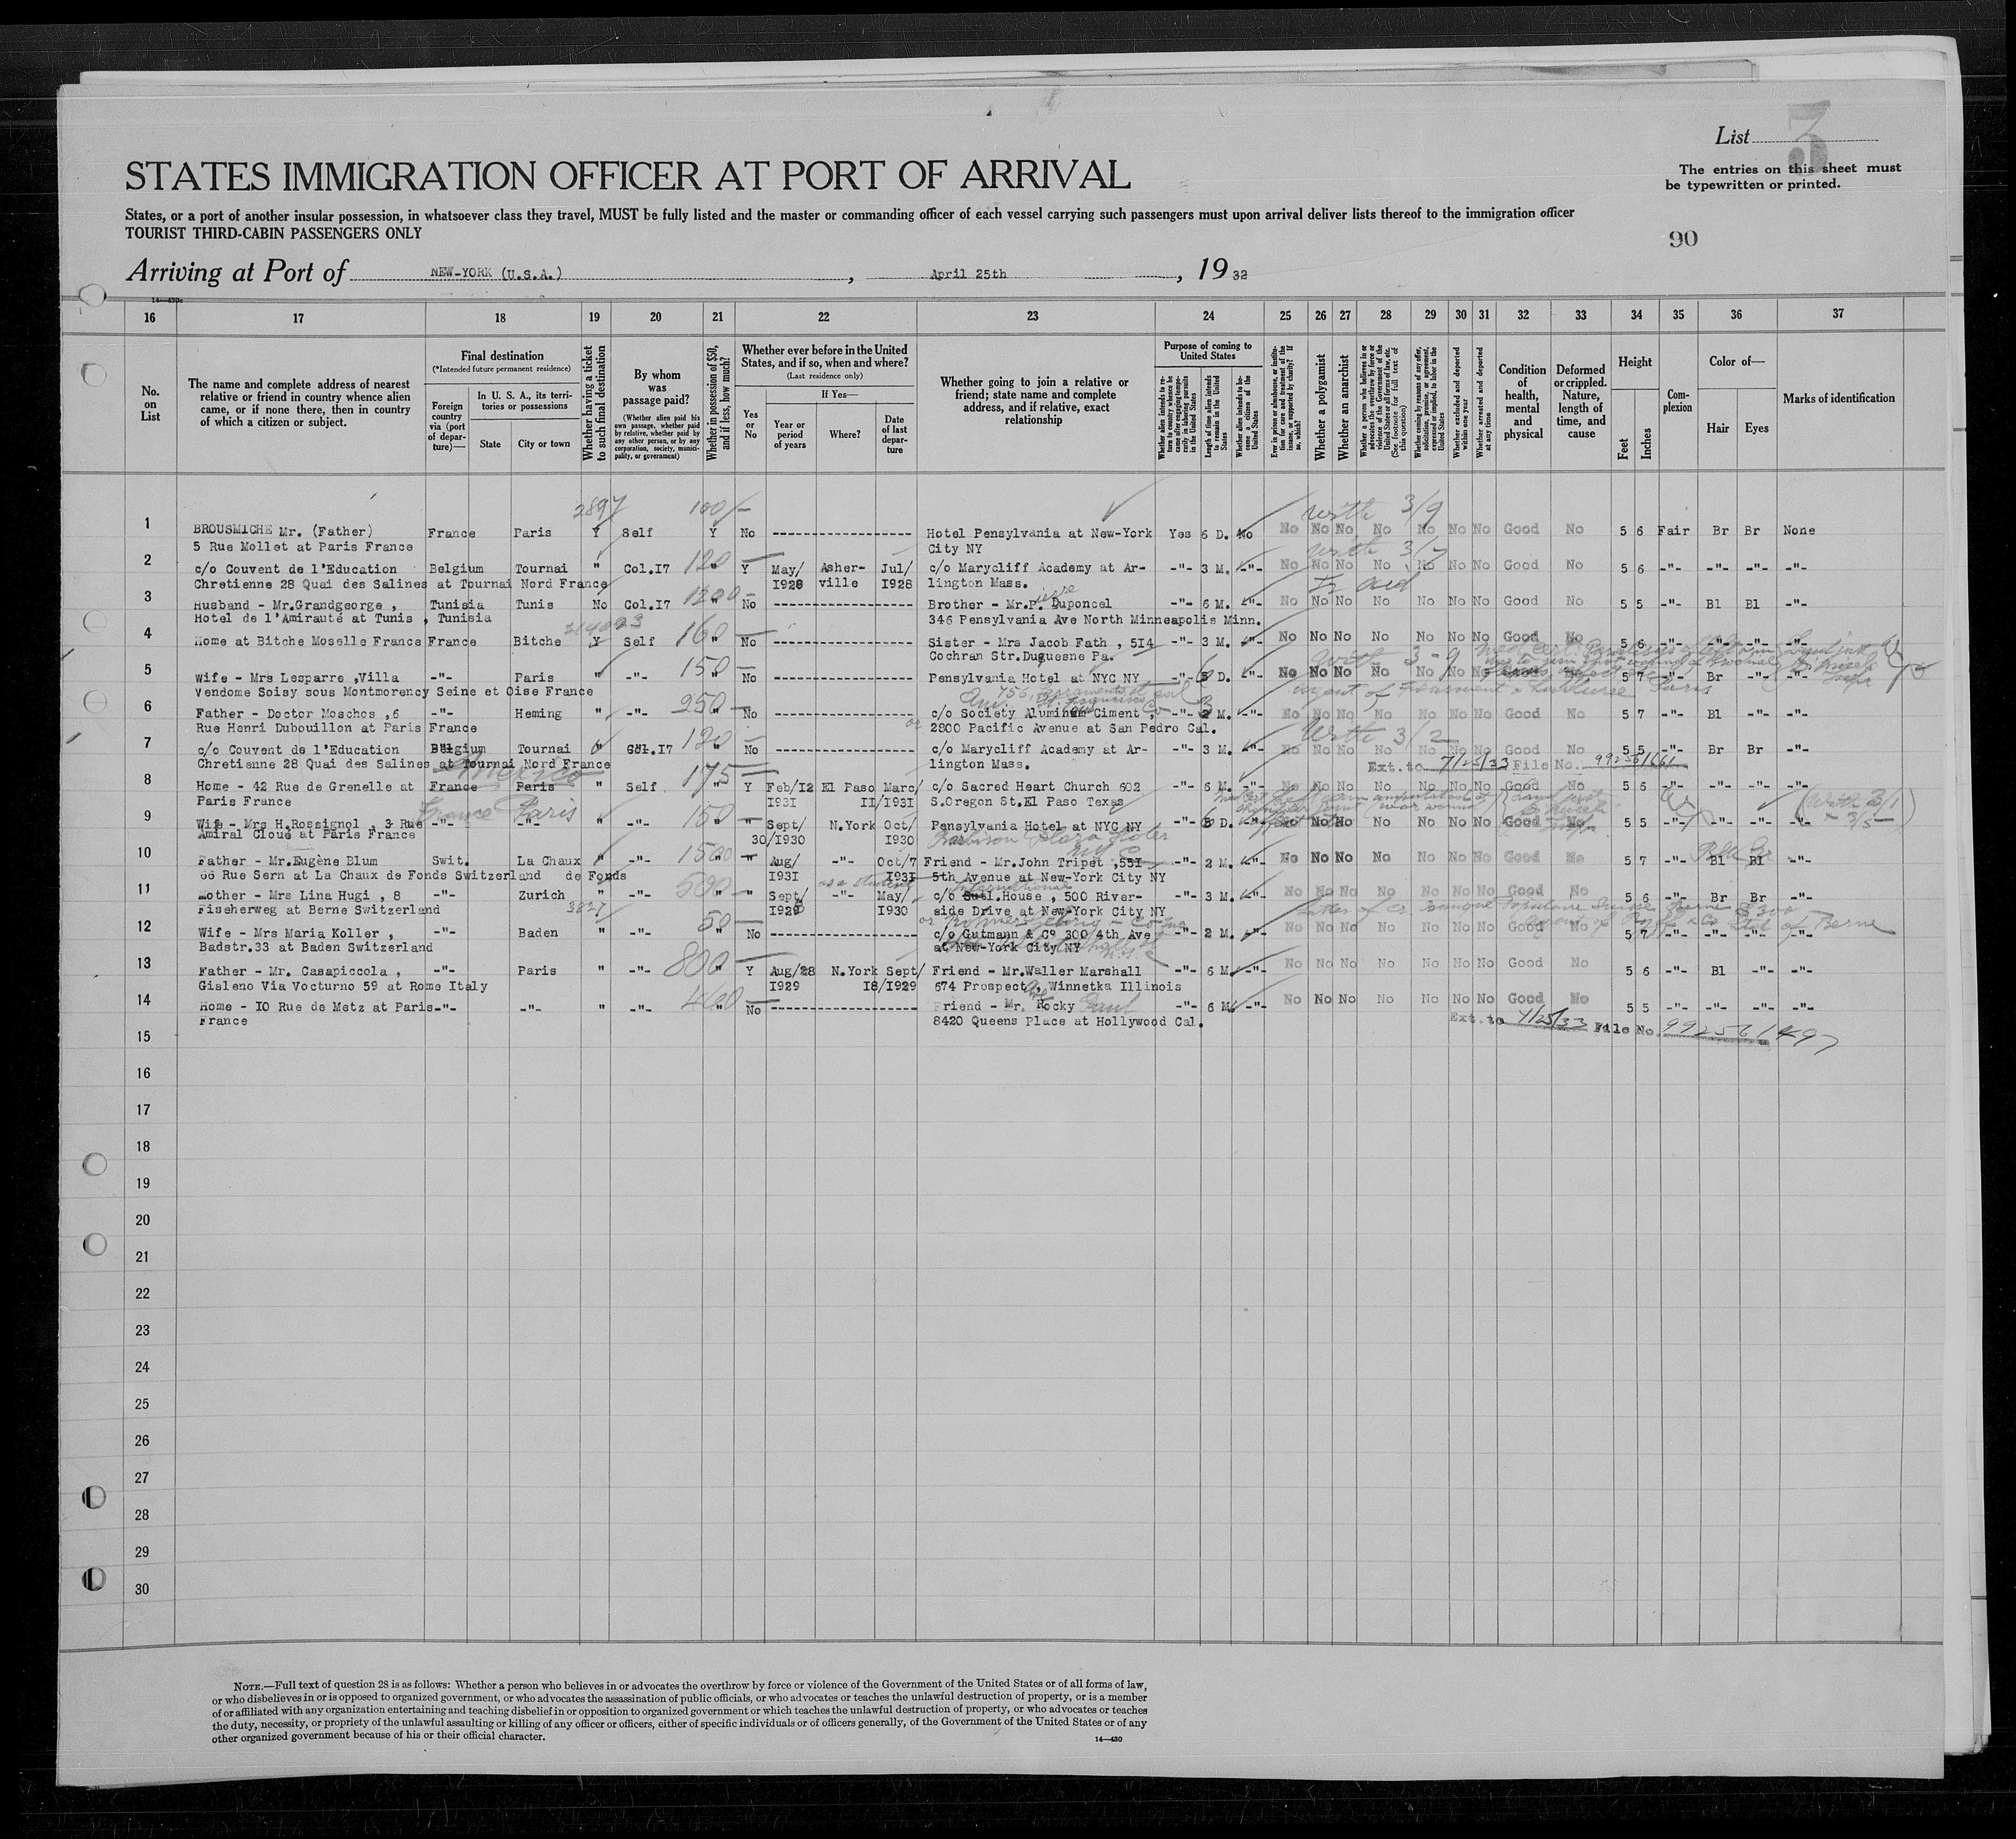 List 3
STATES IMMIGRATION OFFICER AT PORT OF ARRIVAL
The entries on this sheet must
be typewritten or printed.
States, or a port of another insular possession, in whatsoever class they travel, MUST be fully listed and the master or commanding officer of each vessel carrying such passengers must upon arrival deliver lists thereof to the immigration officer
TOURIST THIRD-CABIN PASSENGERS ONLY
90
Arriving at Port of NEW-YORK (U.S.A.), April 25th, 1932
14—430c
16 17 18 19 20 21 22 23 24 25 26 27 28 29 30 31 32 33 34 35 36 37
No. on List
The name and complete address of nearest relative or friend in country whence alien came, or if none there, then in country of which a citizen or subject.
Final destination
(*Intended future permanent residence)
Foreign country via (port of departure)—
In U. S. A., its territories or possessions
State
City or town
Whether having a ticket to such final destination
By whom was passage paid?
(Whether alien paid his own passage, whether paid by relative, whether paid by any other person, or by any corporation, society, municipality, or government)
Whether in possession of $50, and if less, how much?
Whether ever before in the United States, and if so, when and where?
(Last residence only)
Yes or No
If Yes—
Year or period of years
Where?
Date of last departure
Whether going to join a relative or friend; state name and complete address, and if relative, exact relationship
Purpose of coming to United States
Whether alien intends to return to country whence he came after engaging temporarily in laboring pursuits in the United States
Length of time alien intends to remain in the United States
Whether alien intends to become a citizen of the United States
Ever in prison or almshouse, or institution for care and treatment of the insane, or supported by charity? If so, which?
Whether a polygamist
Whether an anarchist
Whether a person who believes in or advocates the overthrow by force or violence of the Government of the United States or all forms of law, etc. (See footnote for full text of this question)
Whether coming by reasons of any offer, solicitation, promise, or agreement, expressed or implied, to labor in the United States
Whether excluded and deported within one year
Whether arrested and deported at any time
Condition of health, mental and physical
Deformed or crippled. Nature, length of time, and cause
Height
Feet
Inches
Complexion
Color of—
Hair
Eyes
Marks of identification
2897 100/— with 3/9
1 BROUSMICHE Mr. (Father) France Paris Y Self Y No ------------------- Hotel Pensylvania at New-York Yes 6 D. No No No No No No No No Good No 5 6 Fair Br Br None
5 Rue Mollet at Paris France City NY
with 3/7
2 c/o Couvent de l'Education Belgium Tournai " Col.I7 120 — Y May/ Asher- Jul/ c/o Marycliff Academy at Ar- -"- 3 M. -"- No No No No No No No Good No 5 6 -"- -"- -"- -"-
Chretienne 28 Quai des Salines at Tournai Nord France I928 ville I928 lington Mass.
3 Husband - Mr.Grandgeorge , Tunisia Tunis No Col.I7 1200 — " No ------------------- Brother - Mr.P. Duponcel -"- 6 M. -"- No No No No No No No Good No 5 5 -"- Bl Bl -"-
Hotel de l'Amirauté at Tunis , Tunisia 346 Pensylvania Ave North Minneapolis Minn.
4 Home at Bitche Moselle France France Bitche Y Self 160 — " No ------------------- Sister - Mrs Jacob Fath , 5I4 -"- 3 M. -"- No No No No No No No Good No 5 6 -"- -"- -"- -"-
Cochran Str.Duquesne Pa.
with 3-9
5 Wife - Mrs Lesparre ,Villa -"- Paris " -"- 150 — " No ------------------- Pensylvania Hotel at NYC NY -"- D. -"- No No No No No No No Good No 5 7 -"- Br -"- -"-
Vendome Soisy sous Montmorency Seine et Oise France
6 Father - Doctor Moschos ,6 -"- Heming " -"- 250 — " No ------------------- c/o Society Aluminum Ciment , -"- M. -"- No No No No No No No Good No 5 7 -"- Bl -"- -"-
Rue Henri Dubouillon at Paris France or 2800 Pacific Avenue at San Pedro Cal.
With 3/2
7 c/o Couvent de l'Education Belgium Tournai " Col.I7 120 — " No ------------------- c/o Marycliff Academy at Ar- -"- 3 M. -"- No No No No No No No Good No 5 5 -"- Br Br -"-
Chretienne 28 Quai des Salines at Tournai Nord France lington Mass.
Mexico Ext. to 7/25/33 File No. 99256/661
8 Home - 42 Rue de Grenelle at France Paris " Self 175 — " Y Feb/I2 El Paso Marc/ c/o Sacred Heart Church 602 -"- 6 M. -"- No No No No No No No Good No 5 6 -"- -"- -"- -"-
Paris France I93I II/I93I S.Oregon St.El Paso Texas
France Paris
9 Wife - Mrs H.Rossignol , 3 Rue -"- -"- " -"- 150 — " " Sept/ N.York Oct/ Pensylvania Hotel at NYC NY -"- D. -"- No No No No No No No Good No 5 5 -"- -"- -"- -"- (with 3/1
Amiral Cloué at Paris France 30/I930 I930 Barbizon Plaza Hotel
10 Father - Mr.Eugène Blum Swit. La Chaux " -"- 1500 " " Aug/ -"- Oct/7 Friend - Mr.John Tripet ,55I -"- 2 M. -"- No No No No No No No Good No 5 7 -"- Bl Bl -"-
66 Rue Sern at La Chaux de Fonds Switzerland de Fonds I93I I93I 5th Avenue at New-York City NY
as a student International
11 Mother - Mrs Lina Hugi , 8 -"- Zurich " -"- 500 " " Sept/ -"- May/ c/o Sutl.House , 500 River- -"- 3 M. -"- No No No No No No No Good No 5 6 -"- Br Br -"-
Fischerweg at Berne Switzerland I928 I930 side Drive at New-York City NY
3827
12 Wife - Mrs Maria Koller , -"- Baden " -"- 50 — " No ------------------- c/o Gutmann & C° 300 4th Ave -"- 2 M. -"- No No No No No No No Good No 5 7 -"- -"- -"- -"-
Badstr.33 at Baden Switzerland at New-York City NY
13 Father - Mr. Casapiccola , -"- Paris " -"- 800 — " Y Aug/28 N.York Sept/ Friend - Mr.Waller Marshall -"- 6 M. -"- No No No No No No No Good No 5 6 -"- Bl -"- -"-
Gisleno Via Vocturno 59 at Rome Italy I929 I8/I929 674 Prospect Ave, Winnetka Illinois
14 Home - I0 Rue de Metz at Paris -"- -"- " -"- 460 — " No ------------------- Friend - Mr. Rocky Paul -"- 6 M. -"- No No No No No No No Good No 5 5 -"- -"- -"- -"-
France 8420 Queens Place at Hollywood Cal.
Ext. to 7/25/33 File No. 99256/497
15
16
17
18
19
20
21
22
23
24
25
26
27
28
29
30
NOTE.—Full text of question 28 is as follows: Whether a person who believes in or advocates the overthrow by force or violence of the Government of the United States or of all forms of law,
or who disbelieves in or is opposed to organized government, or who advocates the assassination of public officials, or who advocates or teaches the unlawful destruction of property, or is a member
of or affiliated with any organization entertaining and teaching disbelief in or opposition to organized government or which teaches the unlawful destruction of property, or who advocates or teaches
the duty, necessity, or propriety of the unlawful assaulting or killing of any officer or officers, either of specific individuals or of officers generally, of the Government of the United States or of any
other organized government because of his or their official character.
14—430